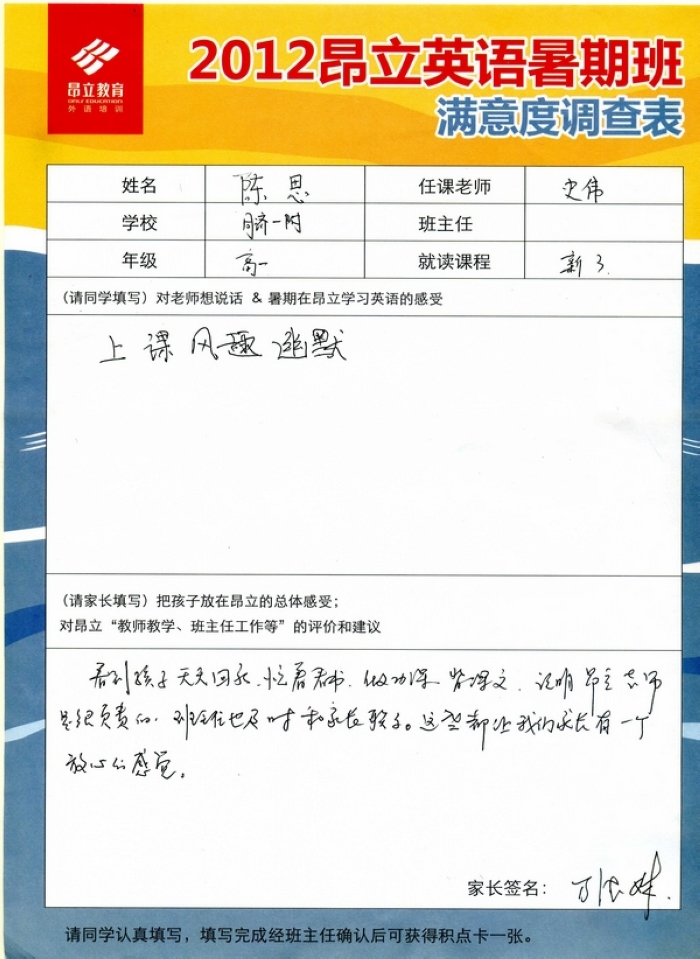 昂立教育
ONLY EDUCATION
外语培训
2012昂立英语暑期班
满意度调查表
姓名 陈思 任课老师 史伟
学校 同济一附 班主任
年级 高一 就读课程 新3
（请同学填写）对老师想说话 & 暑期在昂立学习英语的感受
上课风趣幽默
（请家长填写）把孩子放在昂立的总体感受；
对昂立“教师教学、班主任工作等”的评价和建议
看到孩子天天回家，忙着看书、做功课、背课文，说明昂立老师
是很负责的，班主任也及时和家长联系。这些都让我们家长有一个
放心的感觉。
家长签名：
请同学认真填写，填写完成经班主任确认后可获得积点卡一张。